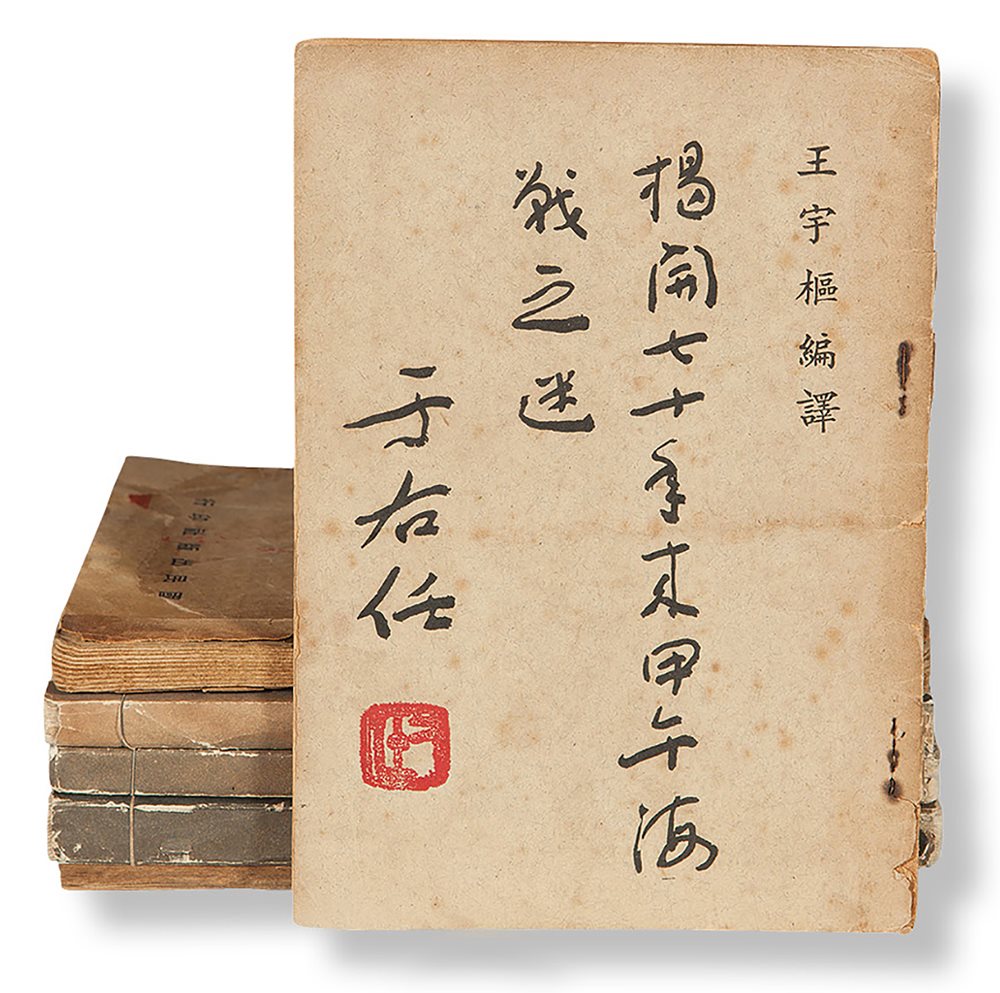 王宇樞編譯
揭開七十年来甲午海
戰之迷
于右任